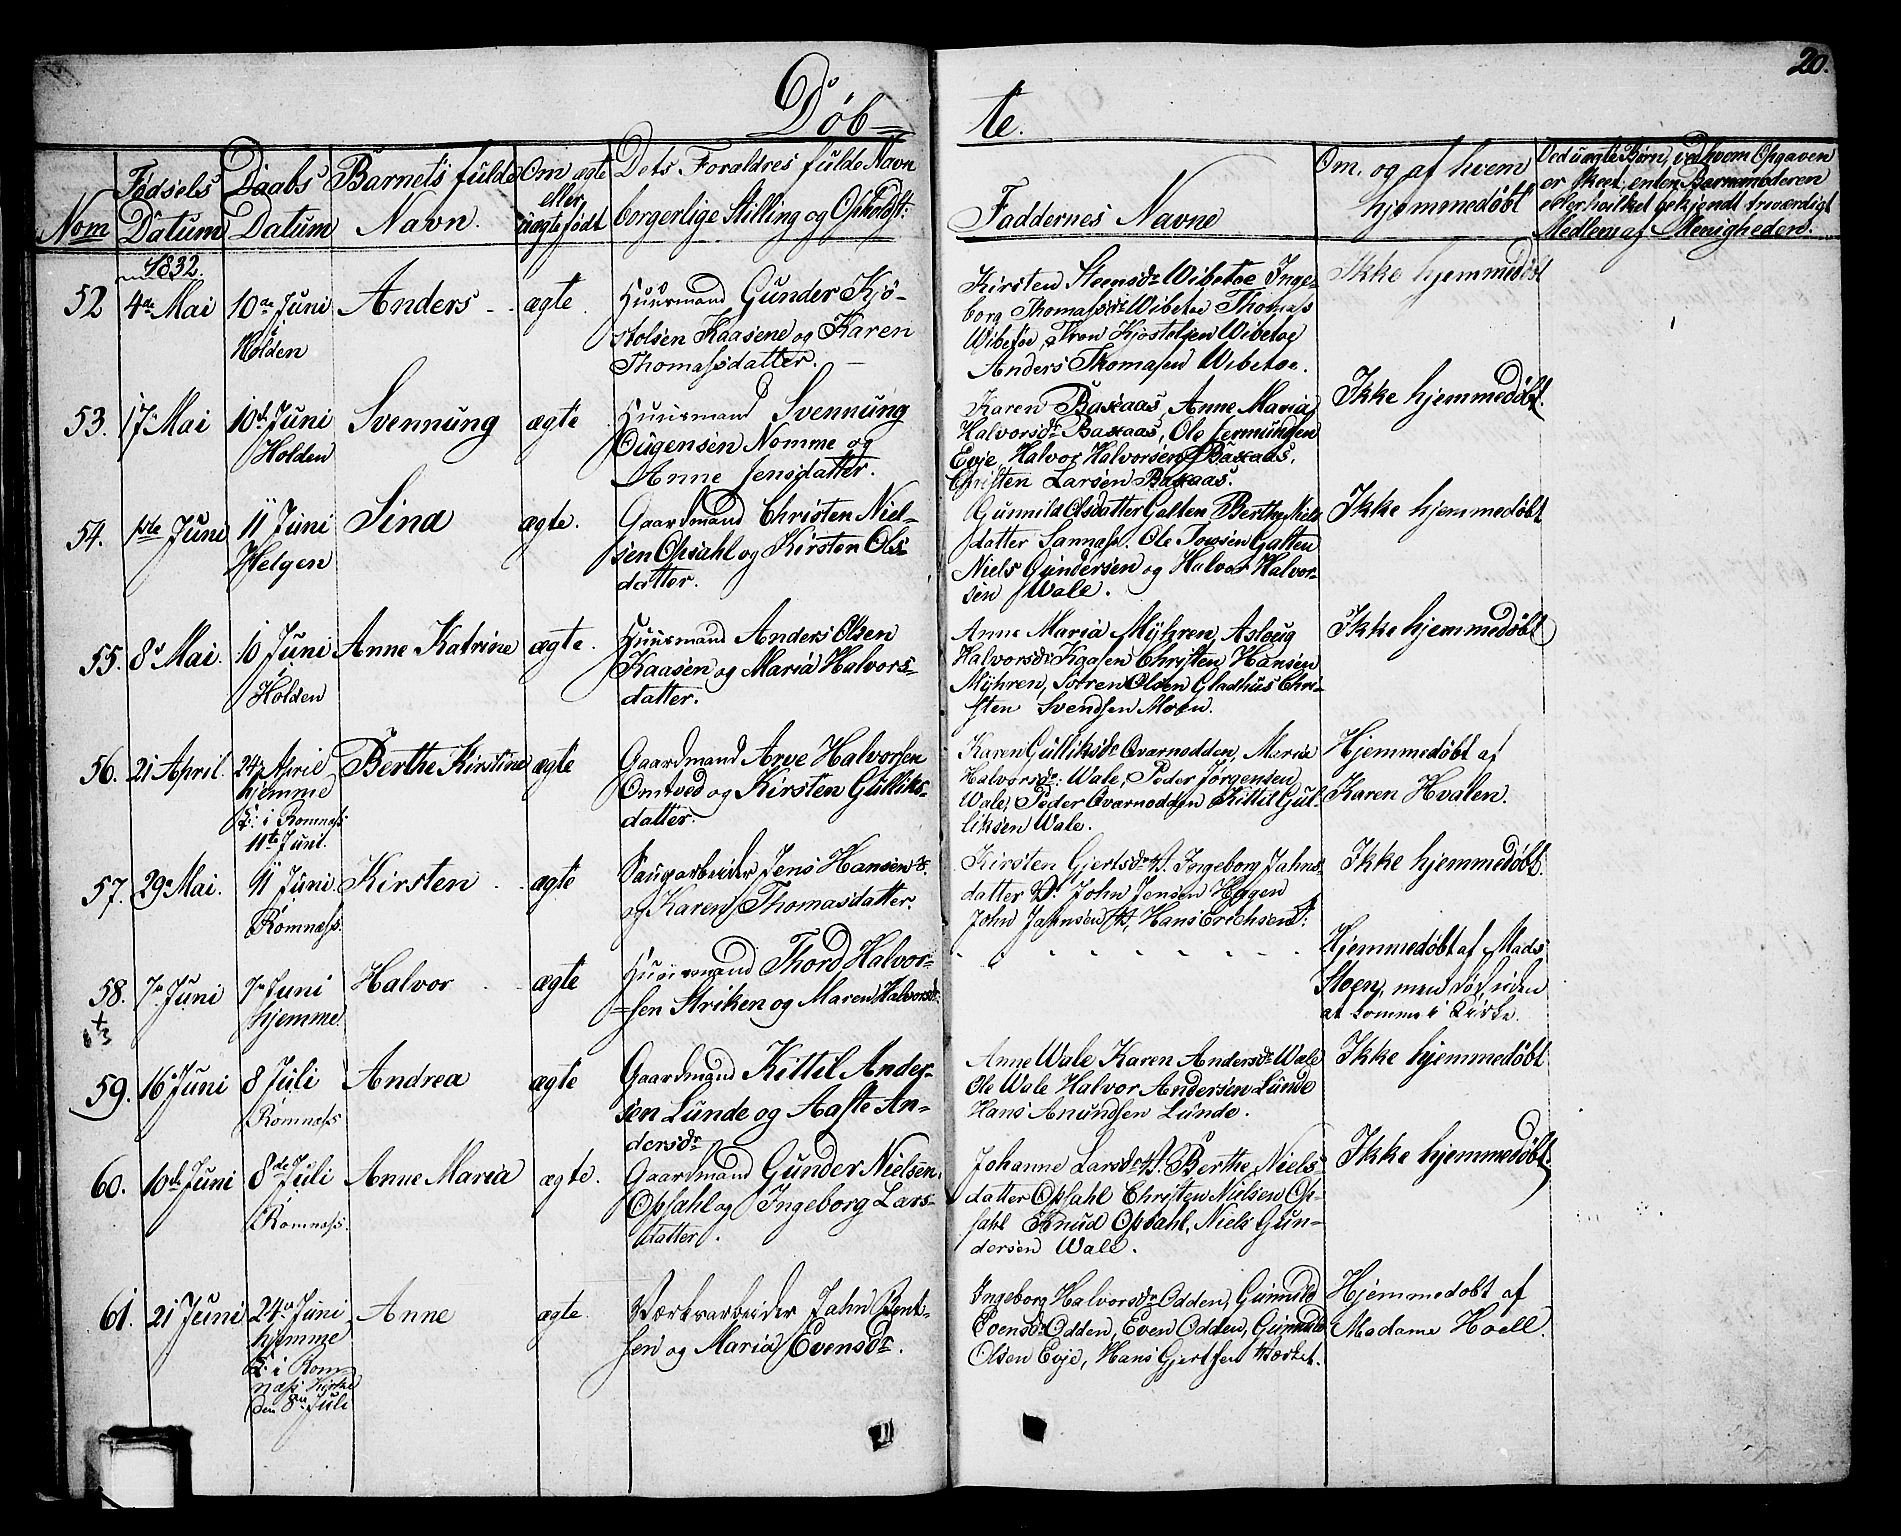 20.
Døb=
te.
Nom
Fødsels
Datum
Daabs
Datum
Barnets fulde
Navn.
Om ægte
eller
uægte født
Dets Foraldres fulde Navn
borgerlige Stilling og Opholdst:
Faddernes Navne
Om, og af hvem
hjemmedøbt
Ved uægte Børn, ved hvem Opgaven
er skeet, enten Barnmoderen
eller hvilket bekjendt troværdigt
Medlem af Menigheden.
1832.
52 4de Mai 10de Juni
i
Holden
Anders - ægte.
Huusmand Gunder Kjø-
stolsen Kaasene og Karen
Thomassdatter. -
Kirsten Steensdr Wibetoe Inge-
borg Thomassdr Wibetoe Thomass
Wibetoe, Tron Kjostolsen Wibetoe
Anders Thomasen Wibetoe.
Ikke hjemmedøbt
53. 17 Mai 10de Juni
Holden
Svennung ægte
Huusmand Svennung
Ougensen Nomme og
Anne Jensdatter.
Karen Baxaas, Anne Maria
Halvorsdr Baxaas, Ole Jermundsen
Evje, Halvor Halvorsen Baxaas,
Christen Larsen Baxaas.
Ikke hjemmedøbt.
54. 1ste Juni 11 Juni
Helgen
Sina ægte.
Gaardmand Christen Niel-
sen Opsahl og Kirsten Ols
datter.
Gunnild Olsdatter Galten Berthe Niels
datter Sannass. Ole Towsen Galten
Niels Gundersen og Halvor Halvor-
sen Wale.
Ikke hjemmedøbt
55. 8de Mai. 10 Juni
Holden
Anne Katrine ægte.
Huusmand Anders Olsen
Kaasen og Maria Halvors-
datter.
Anne Maria Myhren, Asloug
Halvorsdr Kaasen Christen Hansen
Myhren, Sørren Olsen Gladhus Chri-
sten Svendsen Moen.
Ikke hjemmedøbt
56. 21 April. 24 April
hjemme
C: i Romnæss
11te Juni.
Berthe Kirstine ægte
Gaardmand Arve Halvorsen
Omtved og Kirsten Gulliks-
datter.
Karen Gulliksdr Qvarnodden, Maria
Halvorsdr: Wale, Peder Jørgensen
Wale, Peder Qvarnodden Kittil Gul-
liksen Wale.
Hjemmedøbt af
Karen Hvalen.
57. 29 Mai. 11 Juni
Romnæss.
Kirsten ægte
Saugarbeider Jens Hansen
og Karen Thomasdatter.
Kirsten Gjertsdr Ingeborg Jahns-
datter John Jensen Hegen
John Jahnsen Hans Erichsen
Ikke hjemmedøbt.
58. 7de Juni 7de Juni
hjemme.
Halvor ægte
Huusmand Thord Halvor-
sen Striken og Maren Halvorsdr.
Hjemmedøbt af Mads
Stoen, men død uden
at komme i Kirke.
59. 16 Juni 8 Juli
Romnæss
Andrea ægte
Gaardmand Kittil Ander-
sen Lunde og Aaste An-
dersdr
Anne Wale Karen Andersdr Wale
Ole Wale Halvor Andersen Lunde
Hans Anundsen Lunde.
Ikke hjemmedøbt
60. 10de Juni 8de Juli
Romnæss.
Anne Maria ægte.
Gaardmand Gunder Nielsen
Opsahl og Ingeborg Lars-
datter.
Johanne Larsdr Berthe Niels-
datter Opsahl Christen Nielsen Op-
sahl Knud Opsahl, Niels Gun-
dersen Wale.
Ikke hjemmedøbt.
61. 21 Juni 24de Juni
hjemme
C: i Rom-
næss Kirke
den 8de Juli
Anne ægte.
Værksarbeider Jahn Bent-
sen og Maria Evensdr.
Ingeborg Halvorsdr Odden, Gunnild
Evensdr Odden, Even Odden, Gunnuld
Olsen Evje, Hans Gjertsen Værket.
Hjemmedøbt af
Madame Hoell.